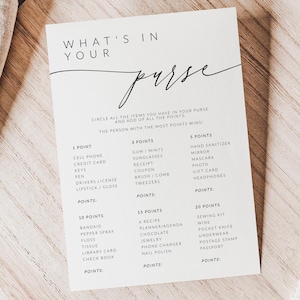 WHAT'S IN
YOUR
purse
CIRCLE ALL THE ITEMS YOU HAVE IN YOUR PURSE
AND ADD UP ALL THE POINTS.
THE PERSON WITH THE MOST POINTS WINS!
1 POINT
CELL PHONE
CREDIT CARD
KEYS
PEN
DRIVERS LICENSE
LIPSTICK / GLOSS
POINTS:
3 POINTS
GUM / MINTS
SUNGLASSES
RECEIPT
COUPON
BRUSH / COMB
TWEEZERS
POINTS:
5 POINTS
HAND SANITIZER
MIRROR
MASCARA
PHOTO
GIFT CARD
HEADPHONES
POINTS:
10 POINTS
BANDAID
PEPPER SPRAY
FLOSS
TISSUE
LIBRARY CARD
CHECK BOOK
POINTS:
15 POINTS
A RECIPE
PLANNER/AGENDA
CHOCOLATE
JEWELRY
PHONE CHARGER
NAIL POLISH
POINTS:
20 POINTS
SEWING KIT
WINE
POCKET KNIFE
UNDERWEAR
POSTAGE STAMP
PASSPORT
POINTS: